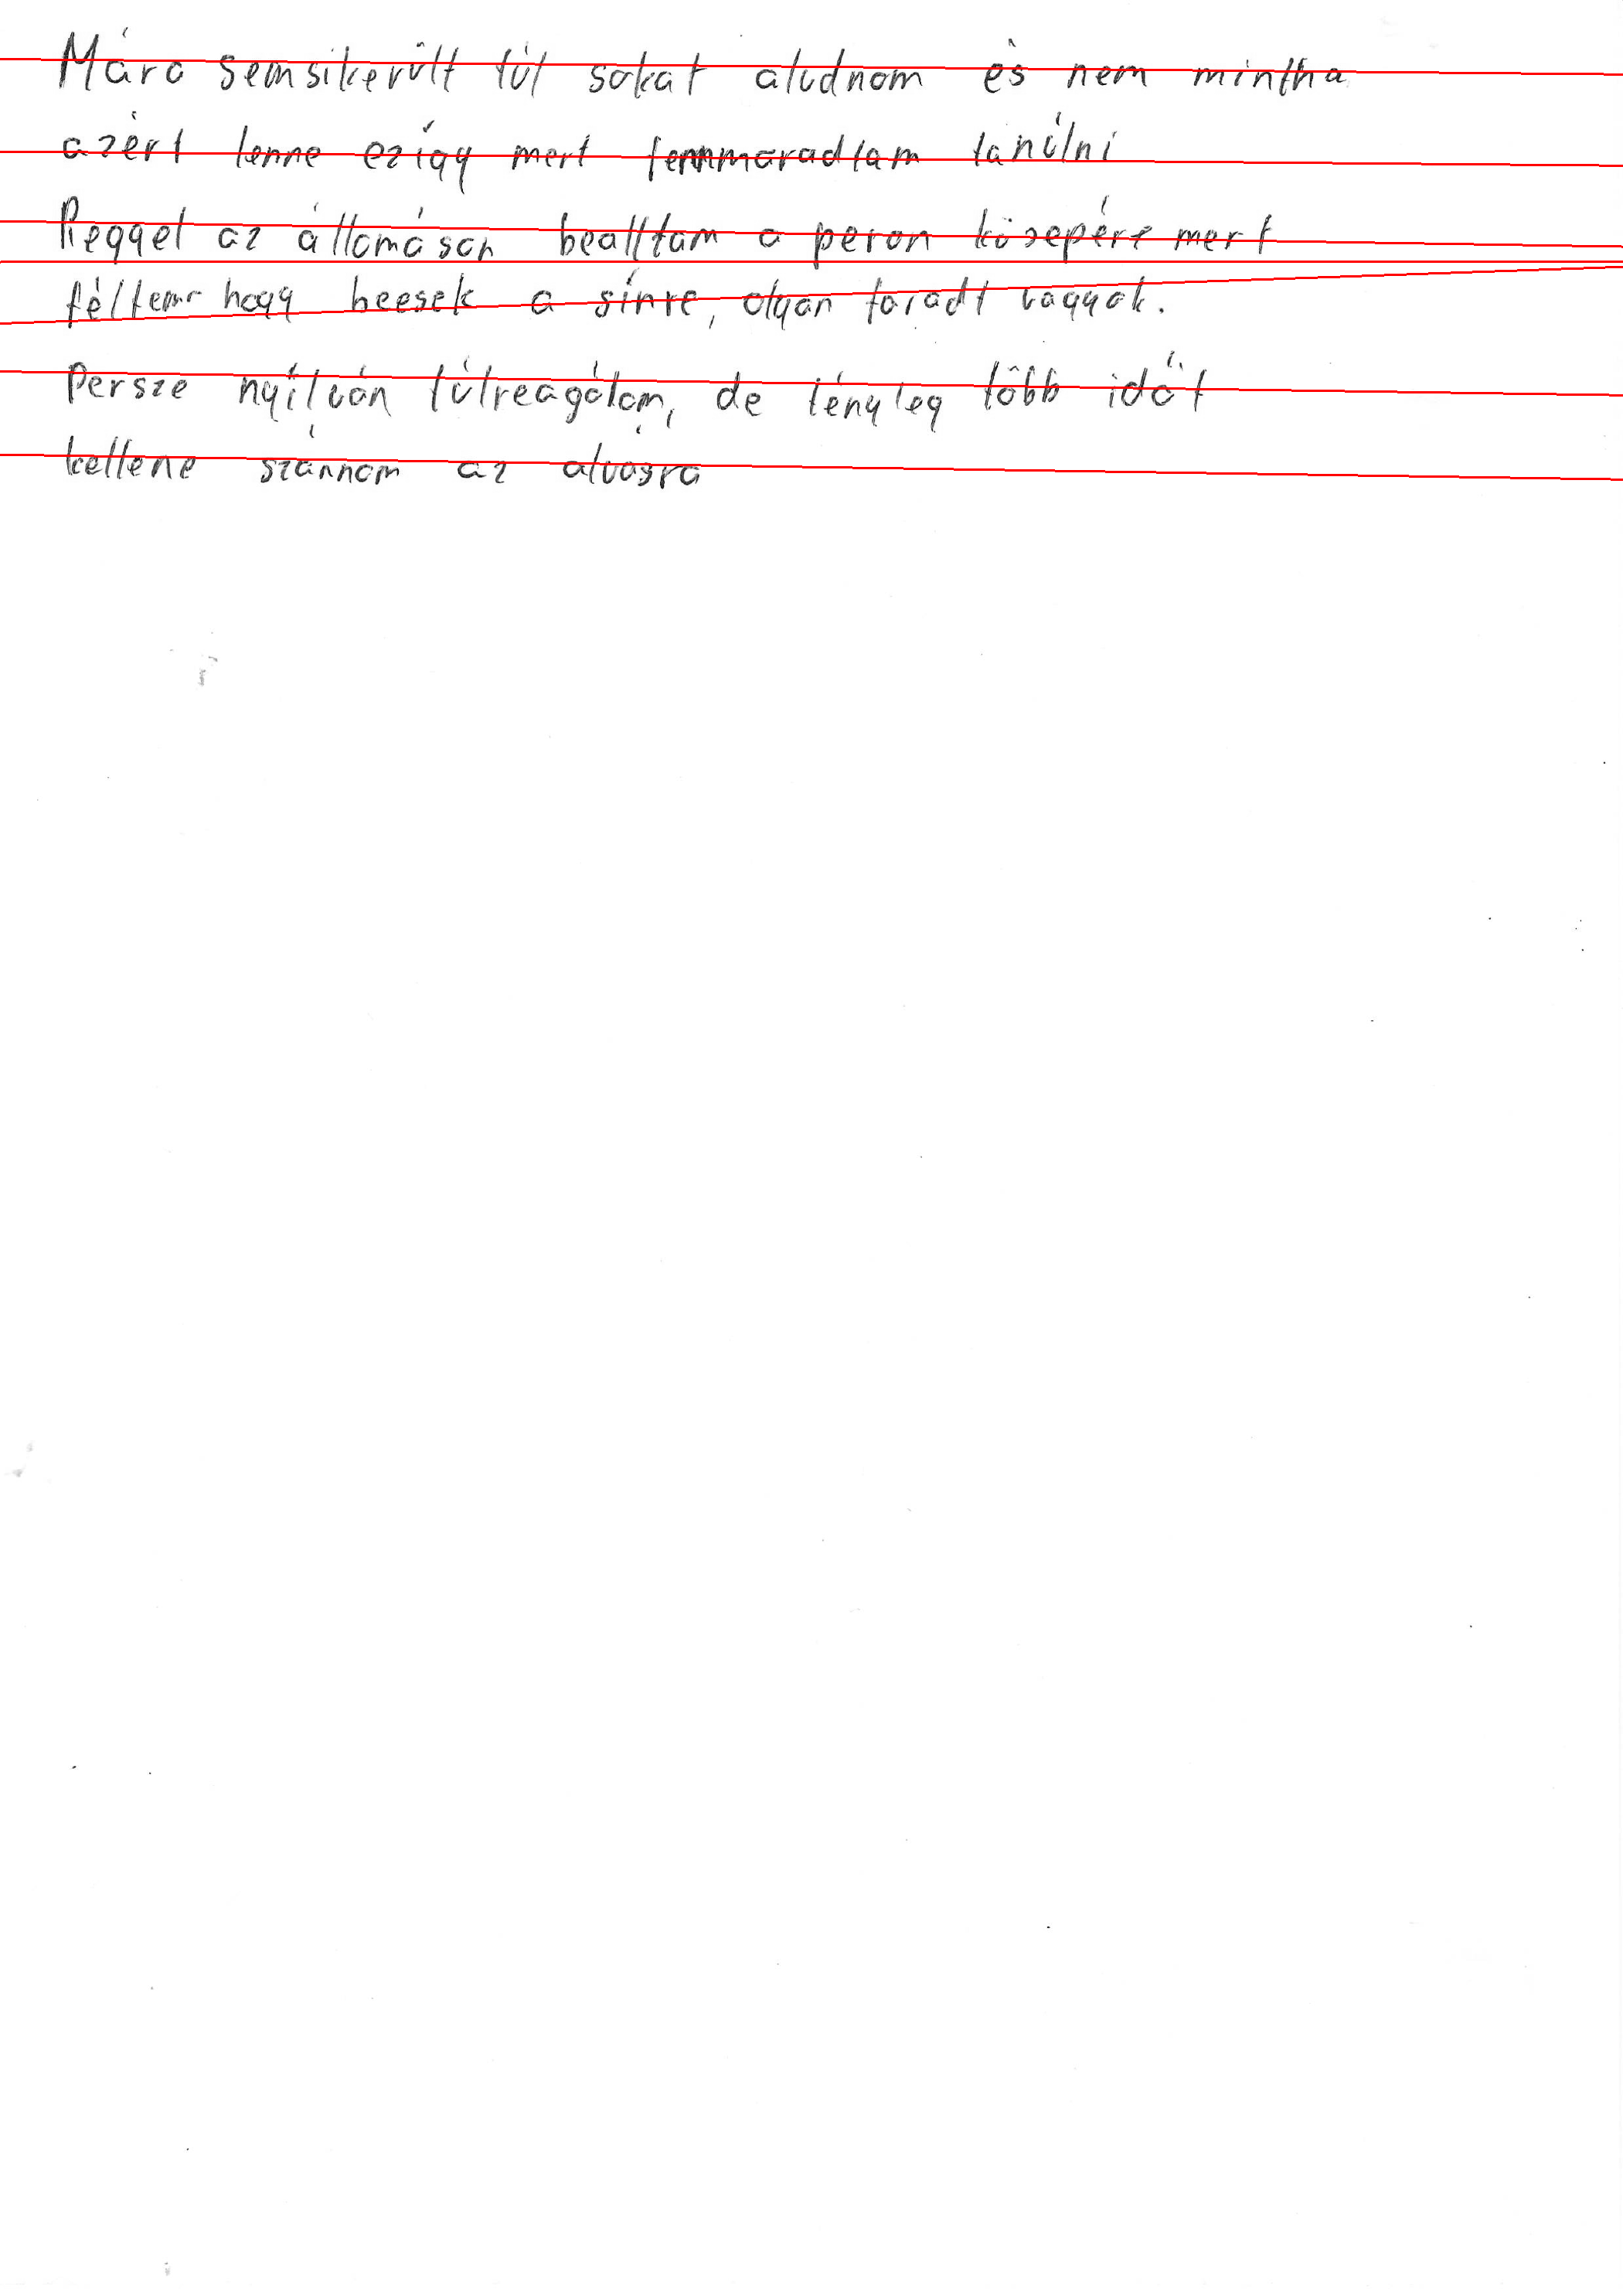 Mára semsikerült túl sokat aludnom és nem mintha
azért lenne ezígy mert fennmaradtam tanúlni
Reggel az állomáson beálltam a peron közepére mert
féltem hogy beesek a sínre, olyan fáradt vagyok.
Persze nyílván túlreagálom, de tényleg több időt
kellene szánnom az alvásra